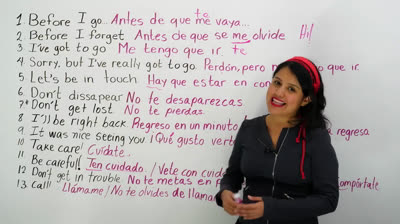 1. Before I go... Antes de que te me vaya...
2 Before I forget Antes de que se me olvide Hi!
3. I've got to go Me tengo que ir te
4. Sorry, but I've really got to go. Perdón, pero que ir
5 Let's be in touch Hay que estar en con
6. Don't dissapear No te desaparezcas
7. Don't get lost. No te pierdas.
8 I'll be right back. Regreso en un minuto regresa
9. It was nice seeing you! Qué gusto verte
10 Take care! Cuídate.
11. Be careful! Ten cuidado. / Vete con cuida
12 Don't get in trouble. No te metas en p compórtate.
13 Call! Llámame / No te olvides de llama